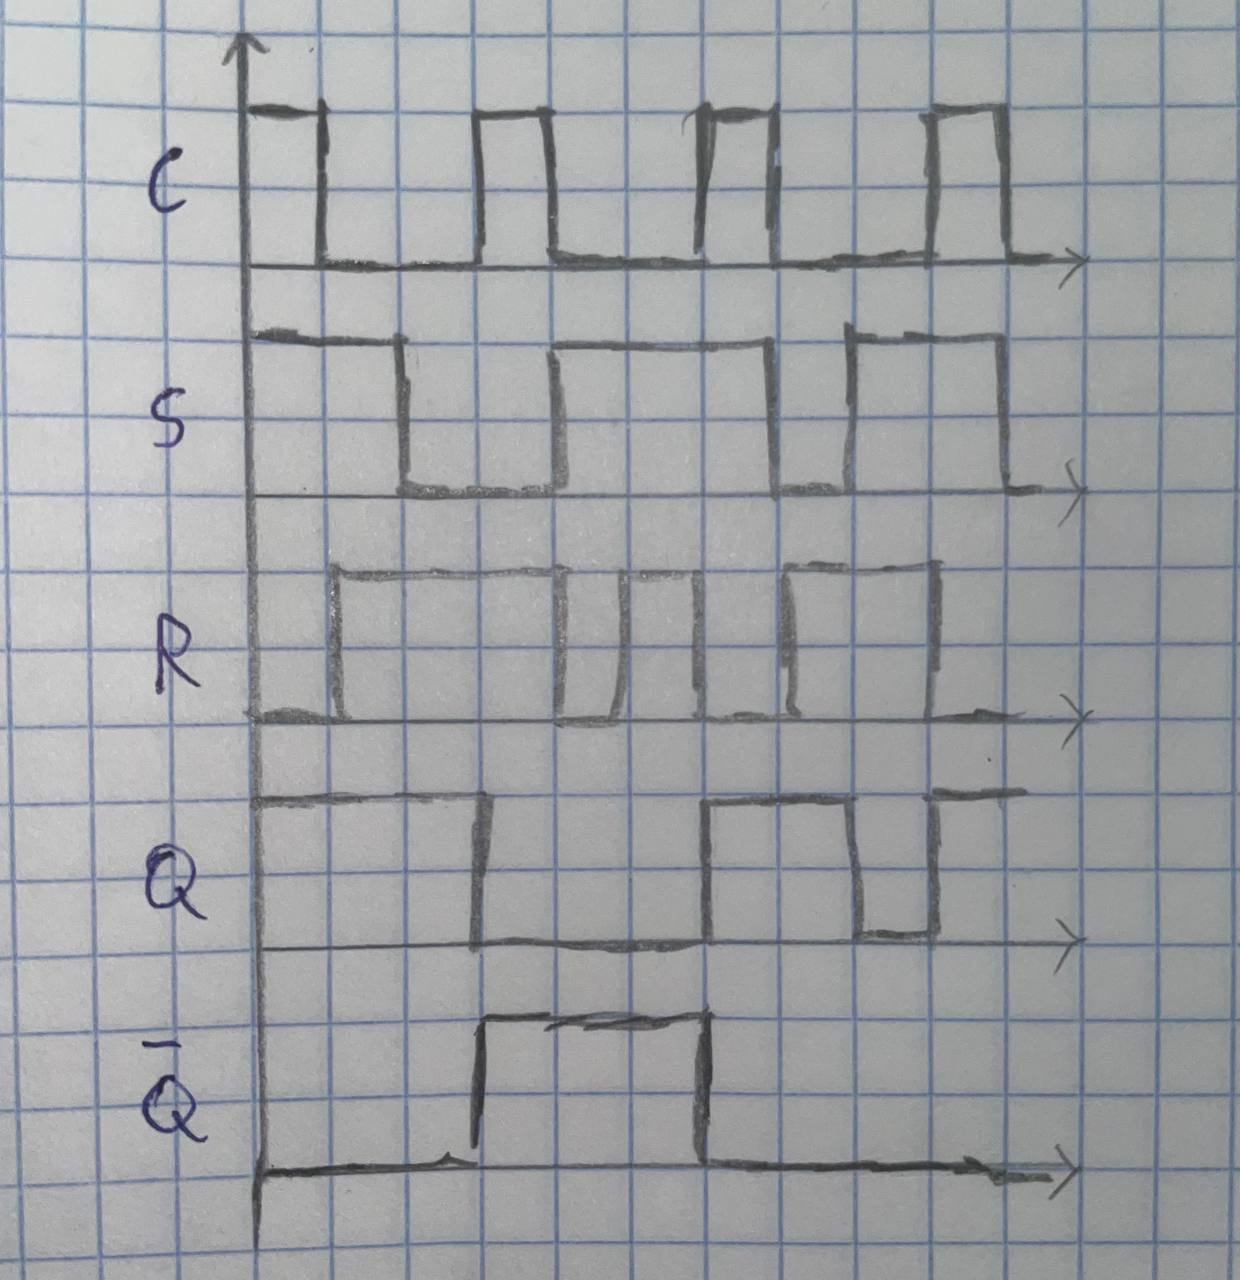 C
S
R
Q
Q̅